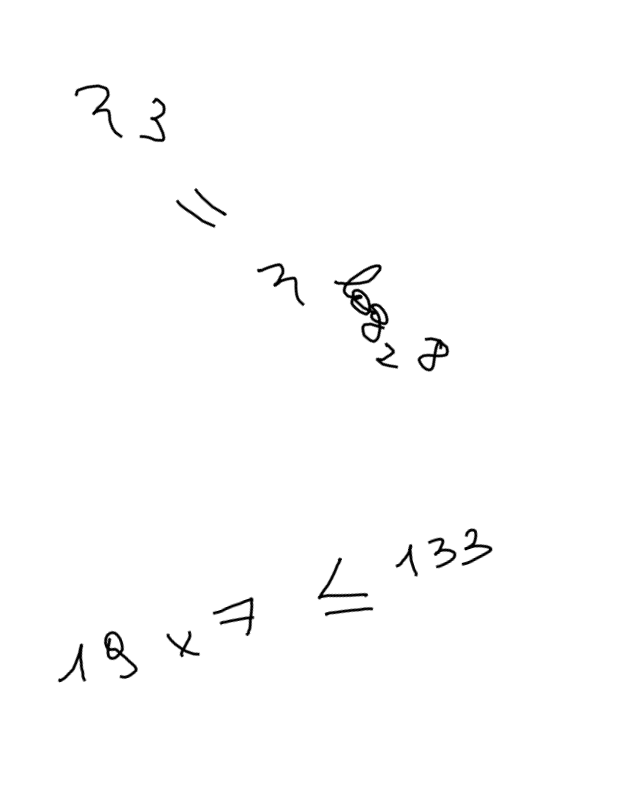 n 3 = n log₂ 8
19 × 7 ≤ 133